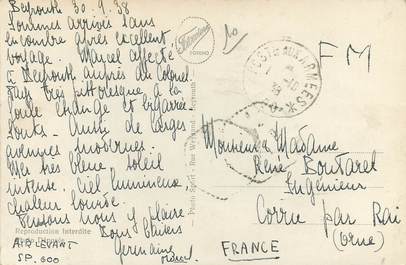 Beyrouth 30-9-38
Sommes arrivés sans
encombre après excellent
voyage. Marcel affecté
à Beyrouth auprès du Colonel.
Pays très pittoresque à la
foule étrange et bigarrée
Souks. Aussi de larges
avenues modernes.
Mer très bleue, soleil
intense. Ciel lumineux
chaleur lourde.
Pensons nous y plaire
Bons baisers
Germaine
Reproduction Interdite
AFR LEVANT
SP. 600
Ferrania
TORINO
Photo Sport - Rue Weygand - Beyrouth
POSTE AUX ARMEES
FM
Monsieur & Madame
René Boutarel
Ingénieur
Corrie par Rai
(Orne)
FRANCE